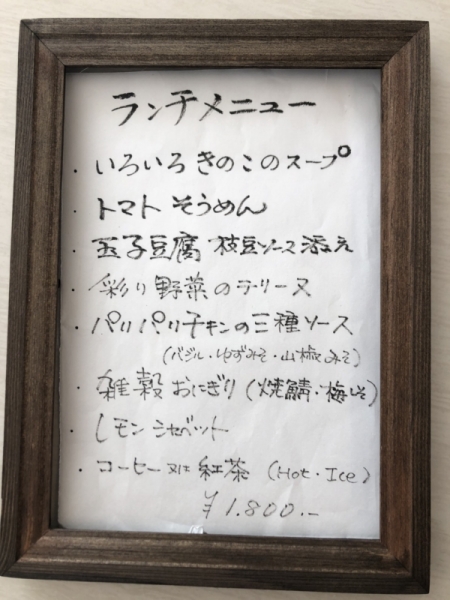 ランチメニュー
・いろいろきのこのスープ
・トマトそうめん
・玉子豆腐 枝豆ソース添え
・彩り野菜のラーリーヌ
・パリパリチキンの三種ソース
(バジル・ゆずみそ・山椒みそ)
・雑穀おにぎり(焼鯖・梅しそ)
・レモンシャーベット
・コーヒー又は紅茶 (Hot・Ice)
¥1.800.-